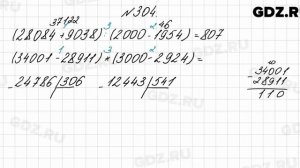 GDZ.R
N304.
37122 46
1 3 2
(28084+9038):(2000-1954)=807
1 3 2
(34001-28911)*(3000-2924)=
-24786|306 -12443|541 -34001
28911
110